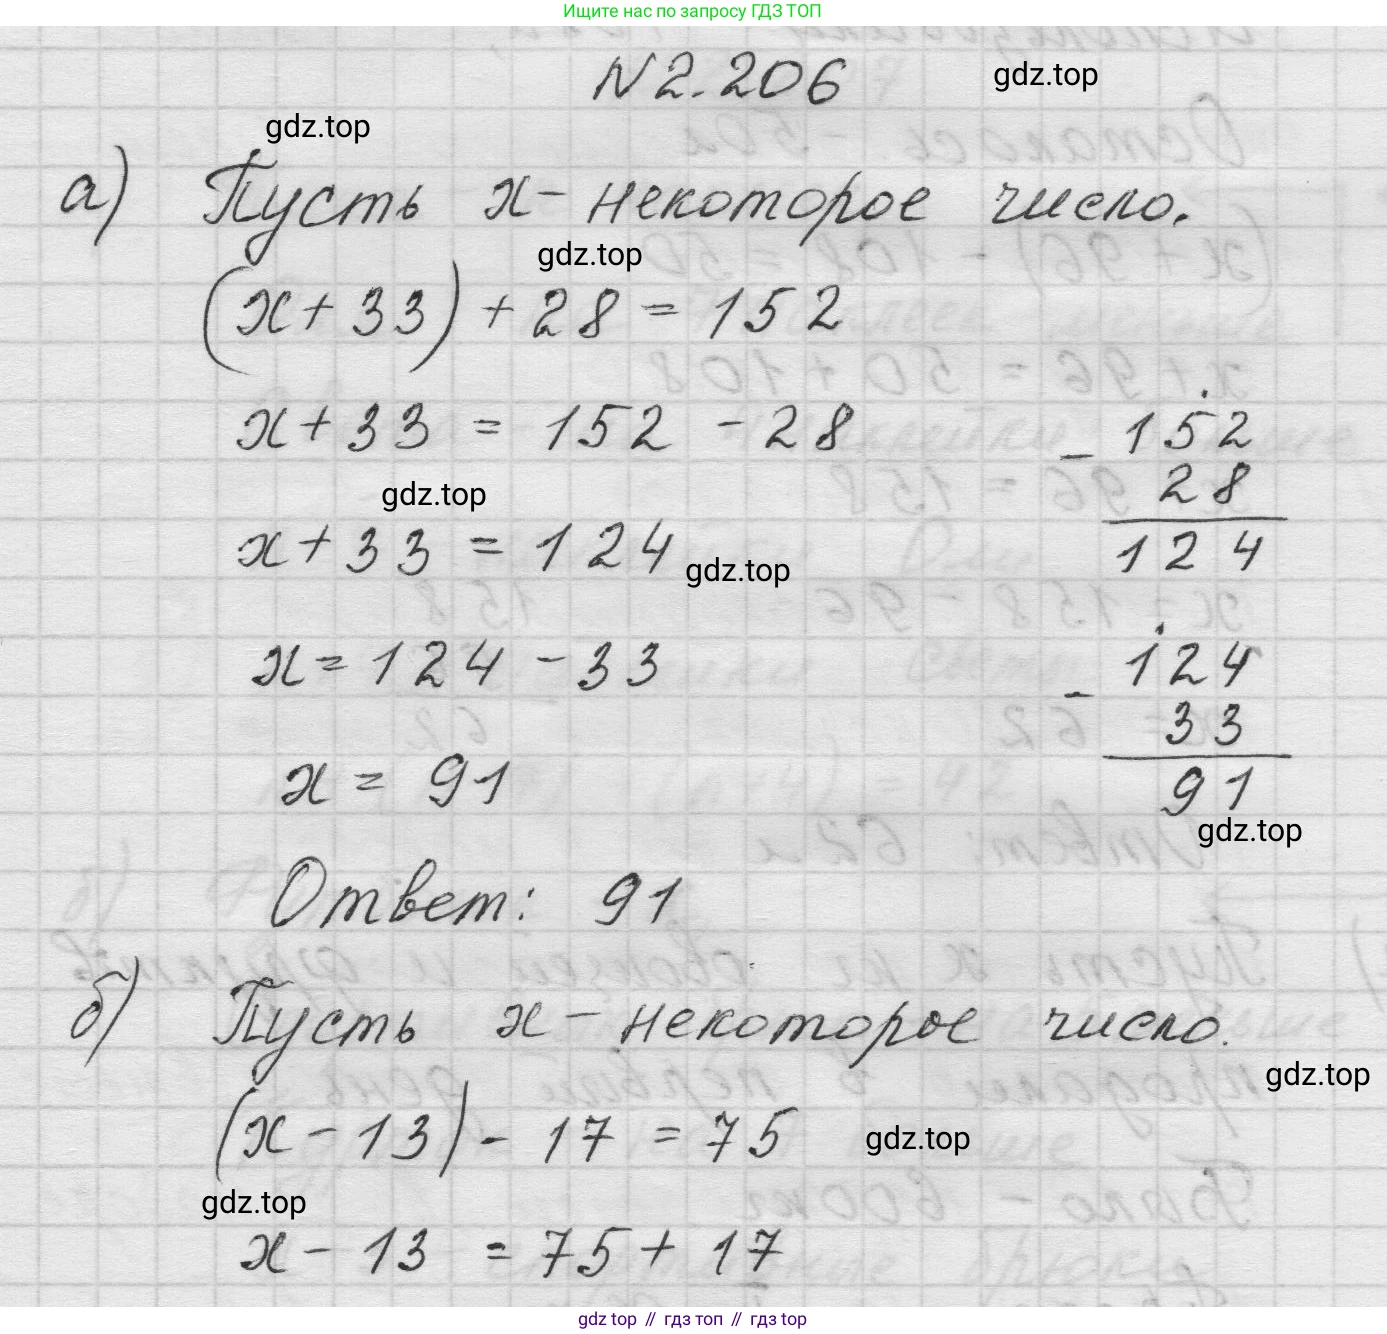 Ищите нас по запросу ГДЗ ТОП
N2.206
gdz.top
gdz.top
а) Пусть x - некоторое число.
gdz.top
(x+33) + 28 = 152
x+33 = 152 - 28
- 152
28
124
gdz.top
x+33 = 124
gdz.top
x = 124 - 33
- 124
33
91
x = 91
gdz.top
Ответ: 91
б) Пусть x - некоторое число.
gdz.top
(x - 13) - 17 = 75
gdz.top
gdz.top
x - 13 = 75 + 17
gdz top // гдз топ // gdz top